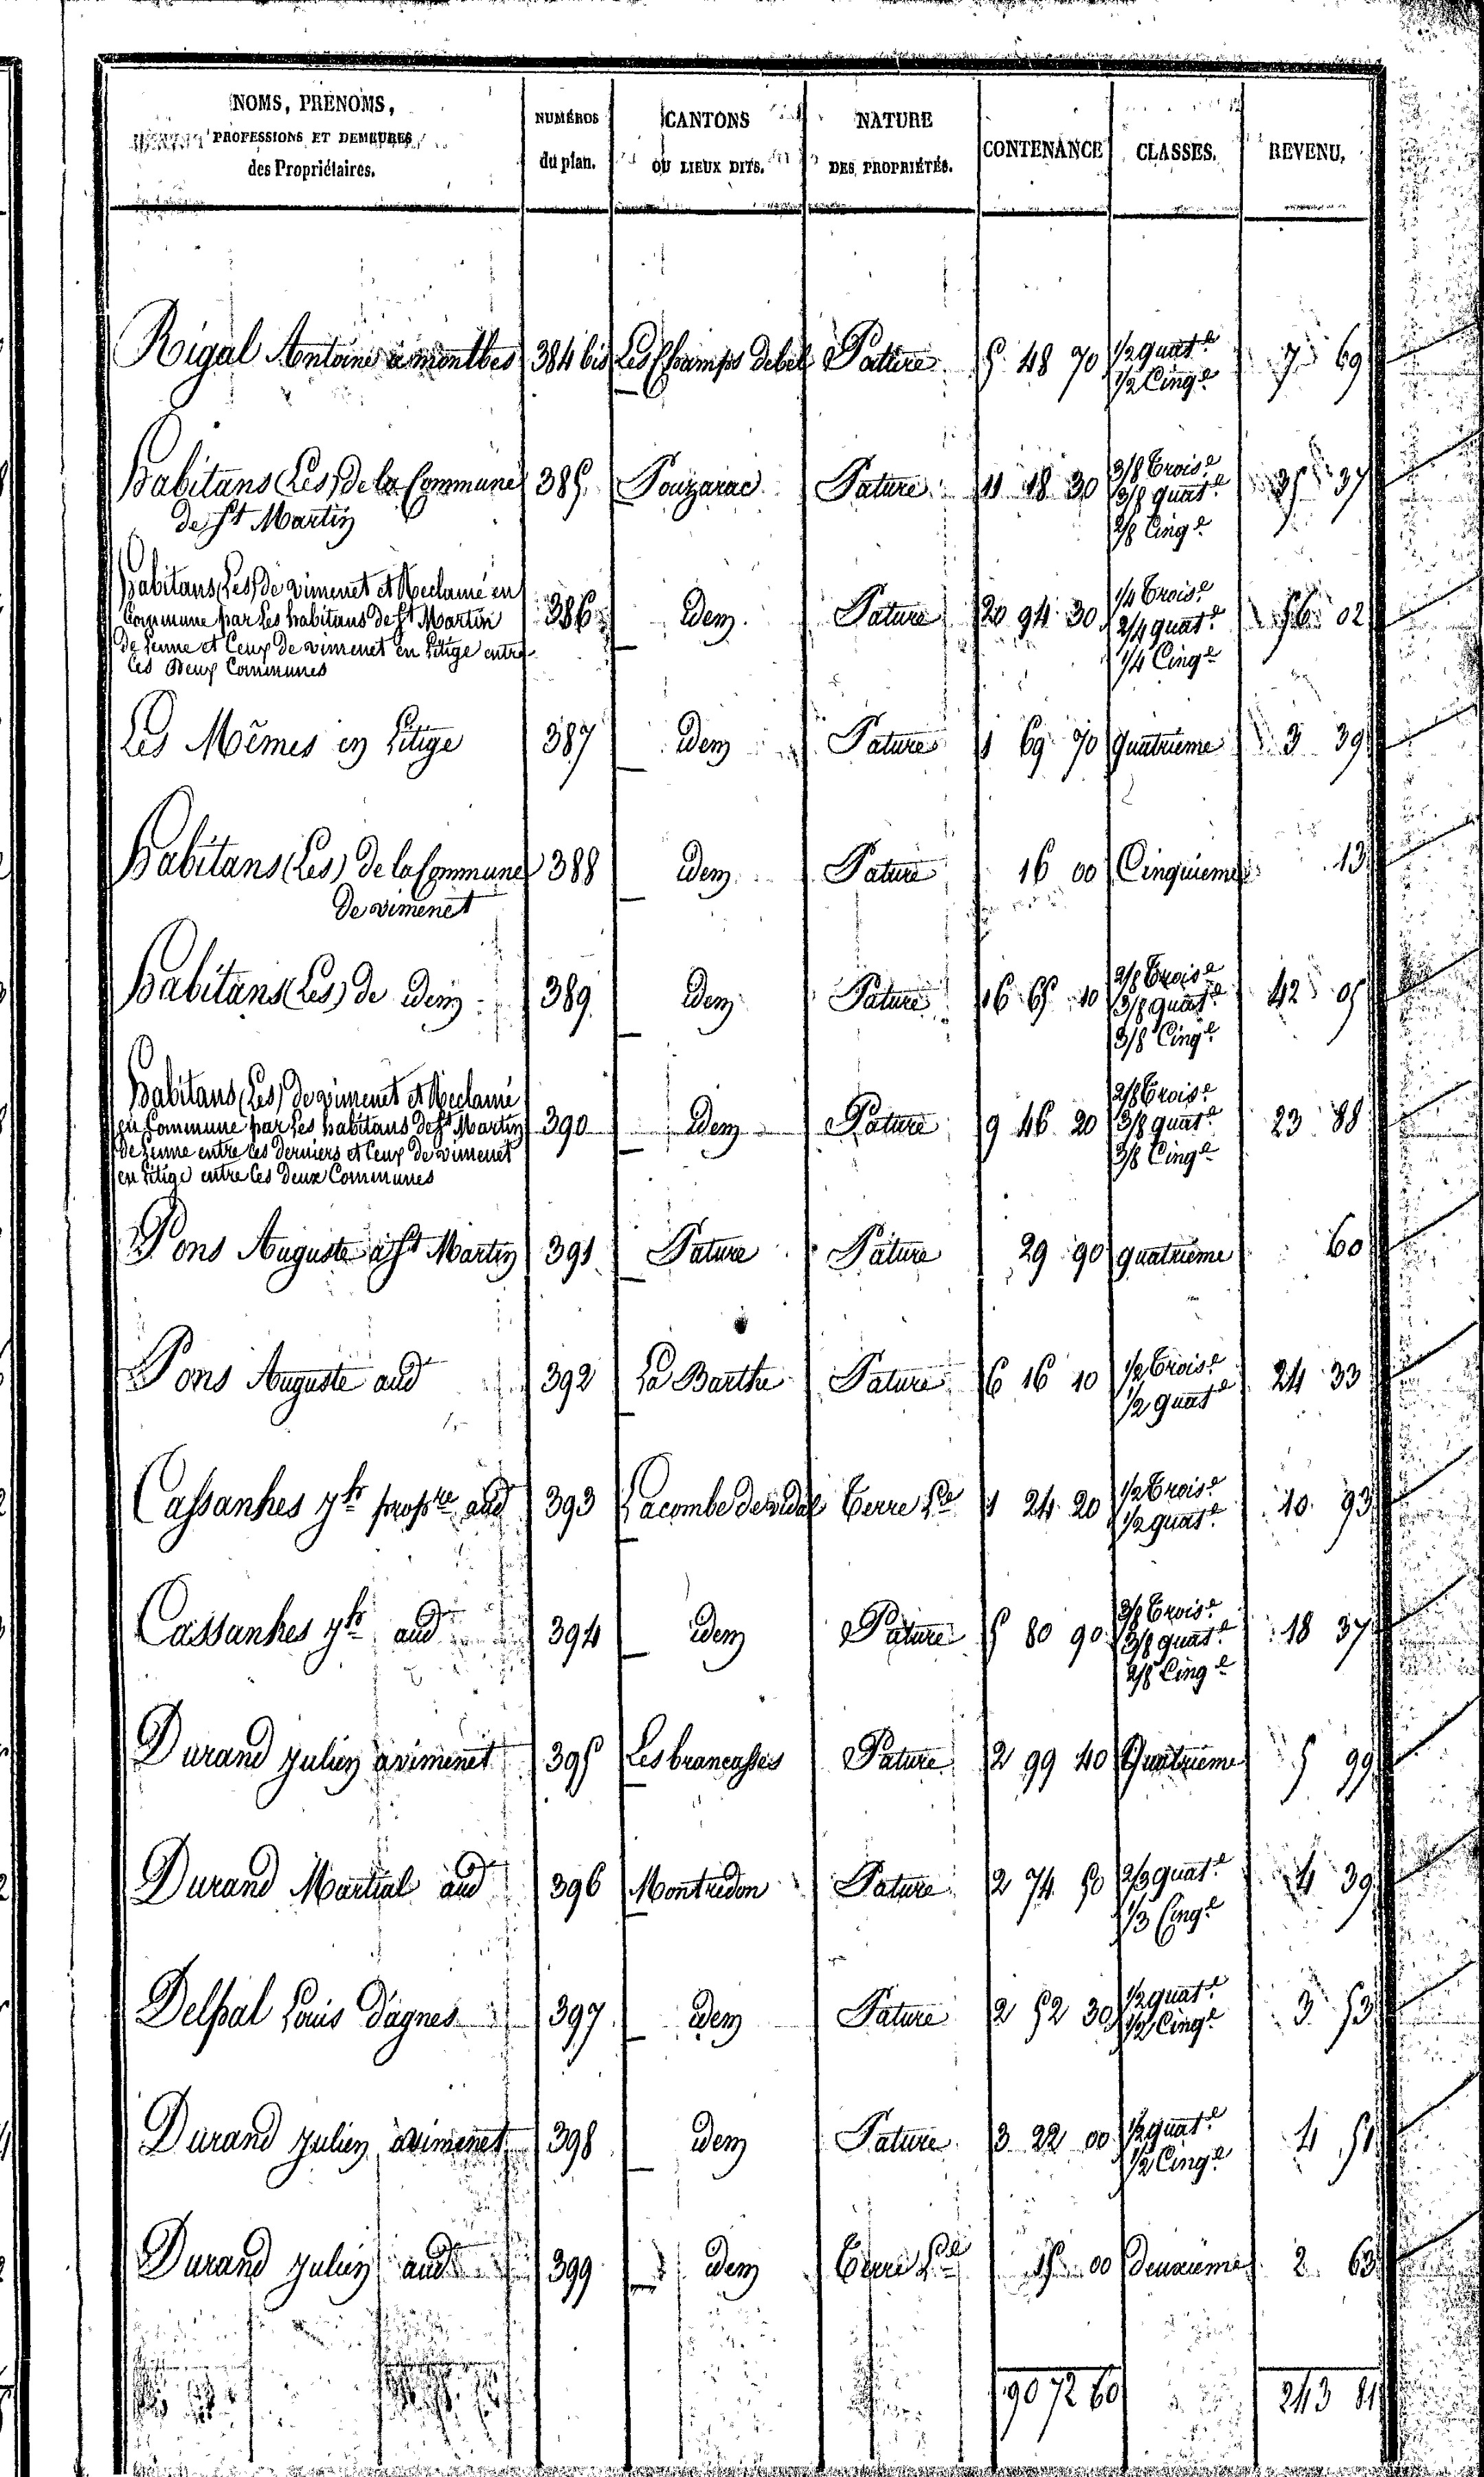 NOMS, PRENOMS,
PROFESSIONS ET DEMEURES
des Propriétaires.
NUMÉROS
du plan.
CANTONS
OU LIEUX DITS.
NATURE
DES PROPRIÉTÉS.
CONTENANCE
CLASSES.
REVENU.
Rigal Antoine a montbes 384 bis Les Champs debel Pature 5 48 70 1/2 quat.e 7 69
1/2 Cinq.e
habitans (Les) de la Commune 385 Pouzarac Pature 11 18 30 3/8 Trois.e 35 37
de St Martin 3/8 quat.e
2/8 Cinq.e
habitans (Les) de vimenet et Reclamé en 386 idem Pature 20 94 30 1/4 Trois.e 56 02
Commune par Les habitans de St Martin 2/4 quat.e
de Lenne et Ceux de vimenet en Litige entre 1/4 Cinq.e
Les Deux Communes
Les Mêmes en Litige 387 idem Pature 1 69 70 quatrieme 3 39
habitans (Les) de la Commune 388 idem Pature 16 00 Cinquieme 13
de vimenet
habitans (Les) de idem 389 idem Pature 16 65 10 2/8 Trois.e 42 05
3/8 quat.e
3/8 Cinq.e
habitans (Les) de vimenet et Reclamé 390 idem Pature 9 46 20 2/8 Trois.e 23 88
en Commune par Les habitans de St Martin 3/8 quat.e
de Lenne entre Ces Derniers et Ceux de vimenet 3/8 Cinq.e
en Litige entre Ces Deux Communes
Pons Auguste a St Martin 391 Pature Pature 29 90 quatrieme 60
Pons Auguste aud 392 La Barthe Pature 6 16 10 1/2 Trois.e 24 33
1/2 quat.e
Cassanhes propre aud 393 Lacombe de vidal Terre Lle 1 24 20 1/2 Trois.e 10 93
1/2 quat.e
Cassanhes aud 394 idem Pature 5 80 90 3/8 Trois.e 18 37
3/8 quat.e
2/8 Cinq.e
Durand Julien a vimenet 395 Les brancasses Pature 2 99 40 Quatrieme 5 99
Durand Martial aud 396 Montredon Pature 2 74 50 2/3 quat.e 4 39
1/3 Cinq.e
Delpal Louis d'agnes 397 idem Pature 2 52 30 1/2 quat.e 3 53
1/2 Cinq.e
Durand Julien a vimenet 398 idem Pature 3 22 00 1/2 quat.e 4 51
1/2 Cinq.e
Durand Julien aud 399 idem Terre Lle 15 00 deuxieme 2 63
90 72 60 243 81